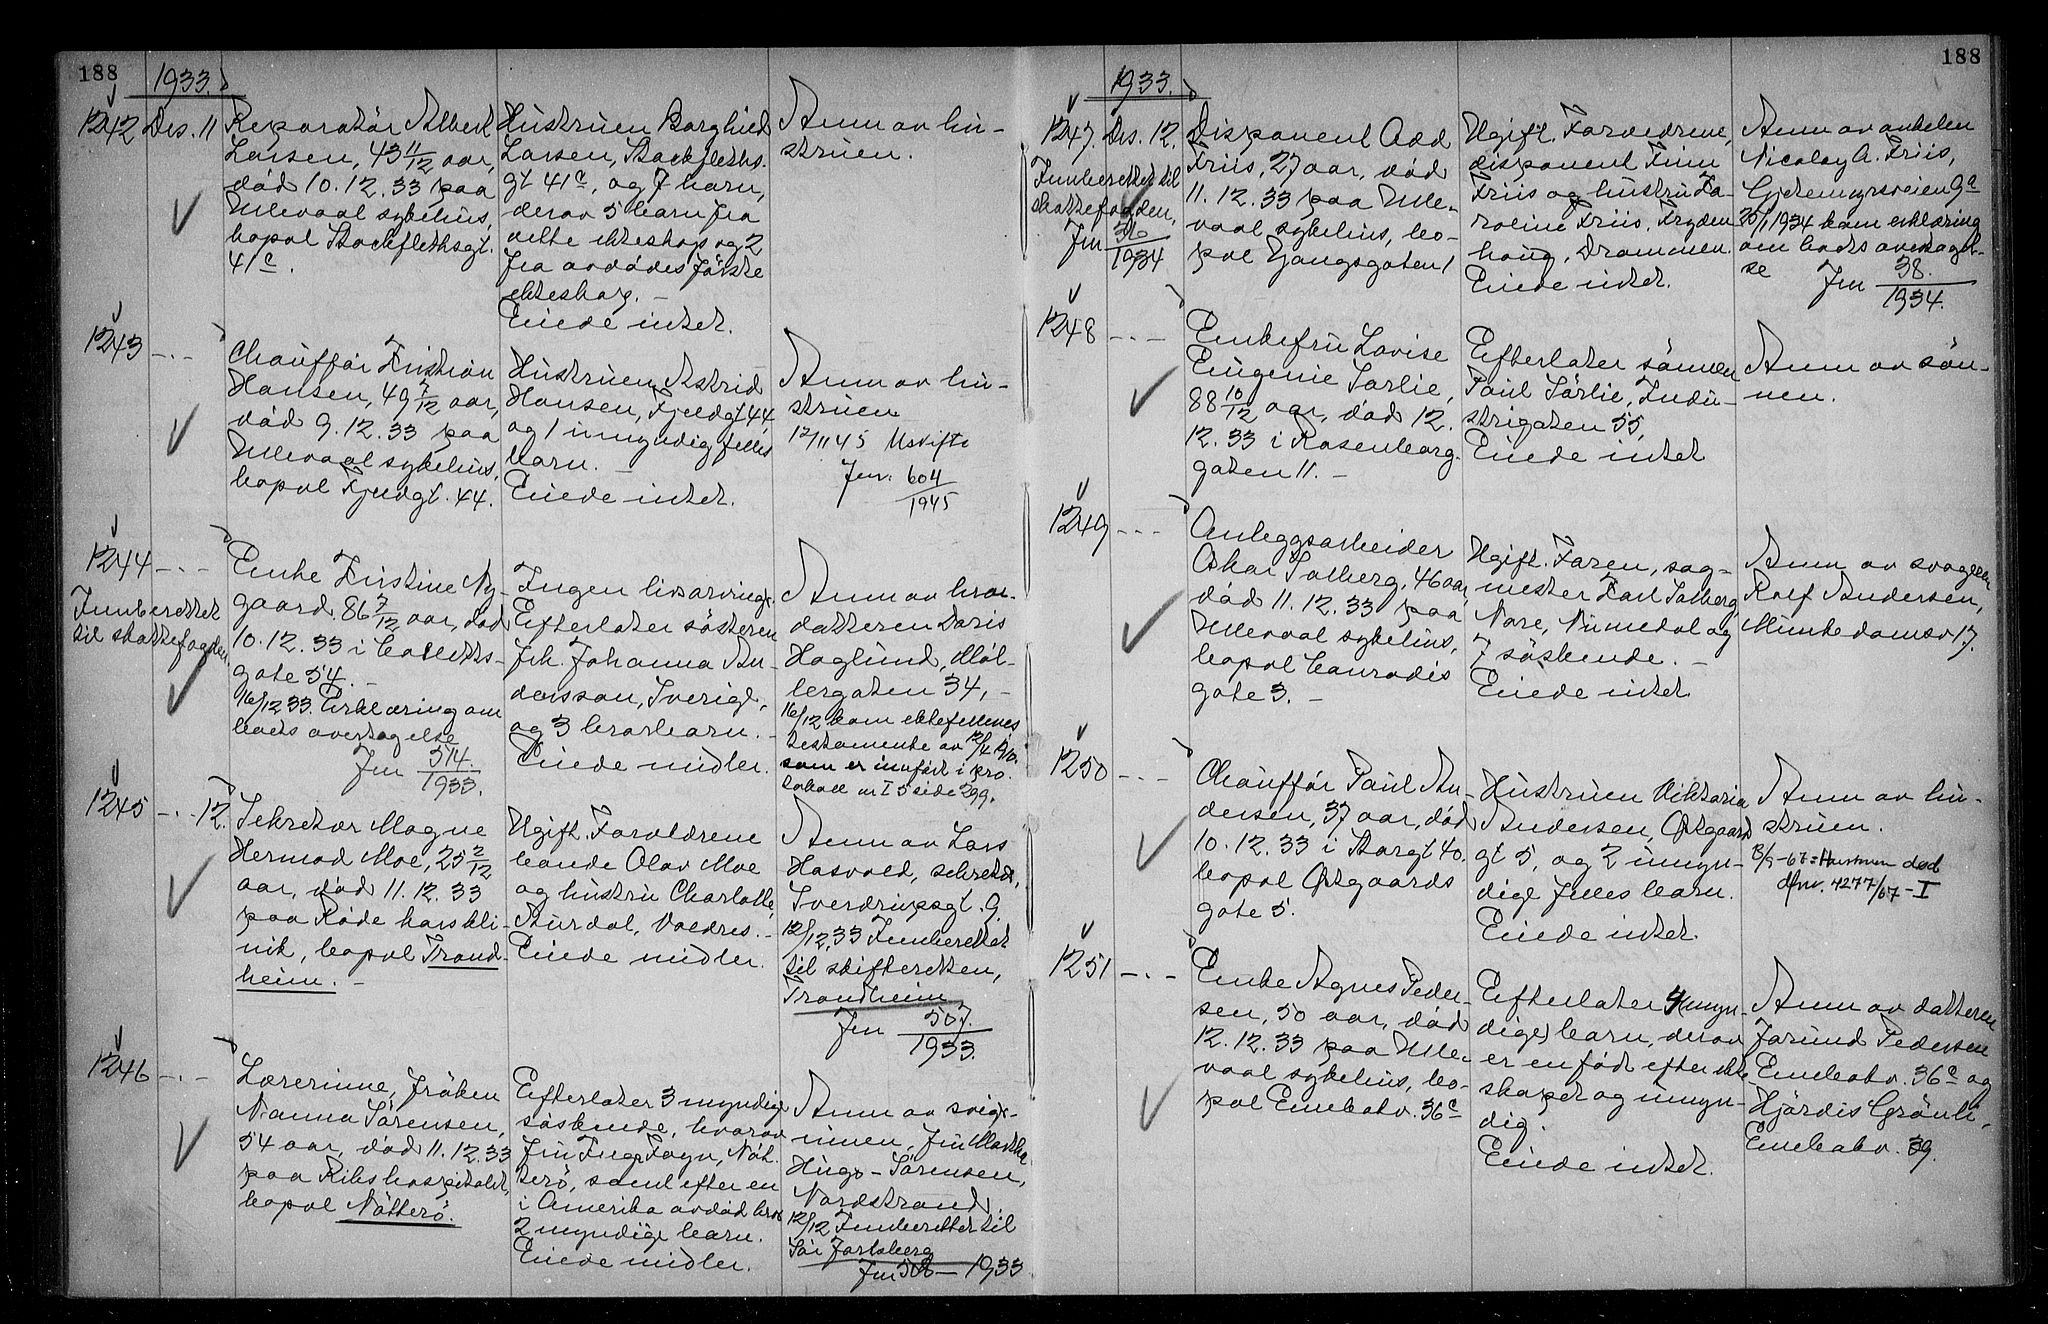 188
1933.
1242 Des. 11
Reparatör Albert
Larsen, 43 11/12 aar,
död 10.12.33 paa
Ullevaal sykehus,
bopæl Stockflethsgt.
41c.
Hustruen Borghild
Larsen, Stockfleths-
gt 41c, og 7 barn,
derav 5 barn fra
dette ekteskap og 2
fra avdödes förste
ekteskap. –
Eiede intet.
Anm av hu-
struen.
1243 – . –
Chauffør Kristian
Hansen, 49 7/12 aar,
död 9.12.33 paa
Ullevaal sykehus,
bopæl Fjeldgt. 44.
Hustruen Astrid
Hansen, Fjeldgt 44
og 1 umyndig felles
barn. –
Eiede intet.
Anm av hu-
struen
12/11 45 Uskifte
Jnr. 604
1945
1244 – . –
Innberettet
til skattefogden.
Enke Kristine Ny-
gaard, 86 7/12 aar, död
10.12.33 i Colletts-
gate 54. –
16/12 33. Erklæring om
boets overtagelse
Jnr 514.
1933.
Ingen livsarving.
Efterlater søsteren
frk. Johanna An-
dersson, Sverige,
og 3 brorbarn. –
Eiede midler.
Anm av bror-
datteren Doris
Haglund, Möl-
lergaten 34, –
16/12 kom ektefellenes
testamente av 12/4 1910.
som er innført i pro-
tokoll nr I 5 side 299.
1245 – . – 12.
Sekretær Magne
Hermod Moe, 25 2/12
aar, död 11.12.33
paa Røde kors kli-
nik, bopæl Trond-
heim. –
Ugift. Forældrene
bonde Olav Moe
og hustru Charlotte,
Aurdal, Valdres. –
Eiede midler.
Anm av Lars
Hasvold, sekretær,
Sverdrupsgt. 9.
12/12.33 Innberettet
til skifteretten,
Trondheim
Jnr 507.
1933.
1246 – . –
Lærerinne, fröken
Nanna Sörensen,
54 aar, död 11.12.33
paa Rikshospitalet,
bopæl Nötterö.
Efterlater 3 myndige
søskende, hvorav
fru Inga Foyn, Nöt-
terö, samt efter en
i Amerika avdöd bror
2 myndige barn.
Eiede midler.
Anm av svige-
rinnen, fru Martha
Hugo-Sörensen,
Nordstrand.
12/12 Innberettet til
Sör Jarlsberg
Jnr 508 – 1933
188
1933.
1247. Des. 12.
Innberettet til
skattefogden,
Jnr 36
1934
Disponent Odd
Friis, 27 aar, död
11.12.33 paa Ulle-
vaal sykehus, bo-
pæl Gangsgaten 1
Ugift. Forældrene,
disponent Finn
Friis og hustru Ka-
roline Friis, Fryden-
haug, Drammen.
Eiede intet.
Anm av onkelen
Nicolay A. Friis,
Gjetemyrsveien 9a
20/1 1934 kom erklæring
om boets overtagel-
se
Jnr 38.
1934.
1248 – . –
Enkefru Lovise
Eugenie Sørlie,
88 10/12 aar, död 12.
12.33 i Rosenborg-
gaten 11. –
Efterlater sönnen
Paul Sörlie, Indu-
strigaten 55,
Eiede intet
Anm av sön-
nen.
1249 – . –
Anleggsarbeider
Oskar Solberg, 46 aar,
död 11.12.33 paa
Ullevaal sykehus,
bopæl Conradis
gate 3. –
Ugift. Faren, sag-
mester Karl Solberg
Nore, Numedal og
7 søskende. –
Eiede intet
Anm av svogeren
Rolf Andersen,
Munkedamsv 17.
1250 – . –
Chauffør Paul An-
dersen, 37 aar, död
10.12.33 i Storgt 40.
bopæl Østgaards
gate 5.
Hustruen Viktoria
Andersen, Østgaards
gt 5, og 2 umyn-
dige felles barn.
Eiede intet.
Anm av hu-
struen.
13/9-67: Hustruen død
dfnr. 4277/67 – I
1251 – . –
Enke Agnes Peder-
sen, 50 aar, död
12.12.33 paa Ulle-
vaal sykehus, bo-
pæl Enebakv. 36c
Efterlater 4 myn-
dige barn, derav
er en född efter ekte-
skapet og umyn-
dig.
Eiede intet.
Anm av datteren
Jorund Pedersen
Enebakv. 36c og
Hjördis Grönli,
Enebakv. 39.